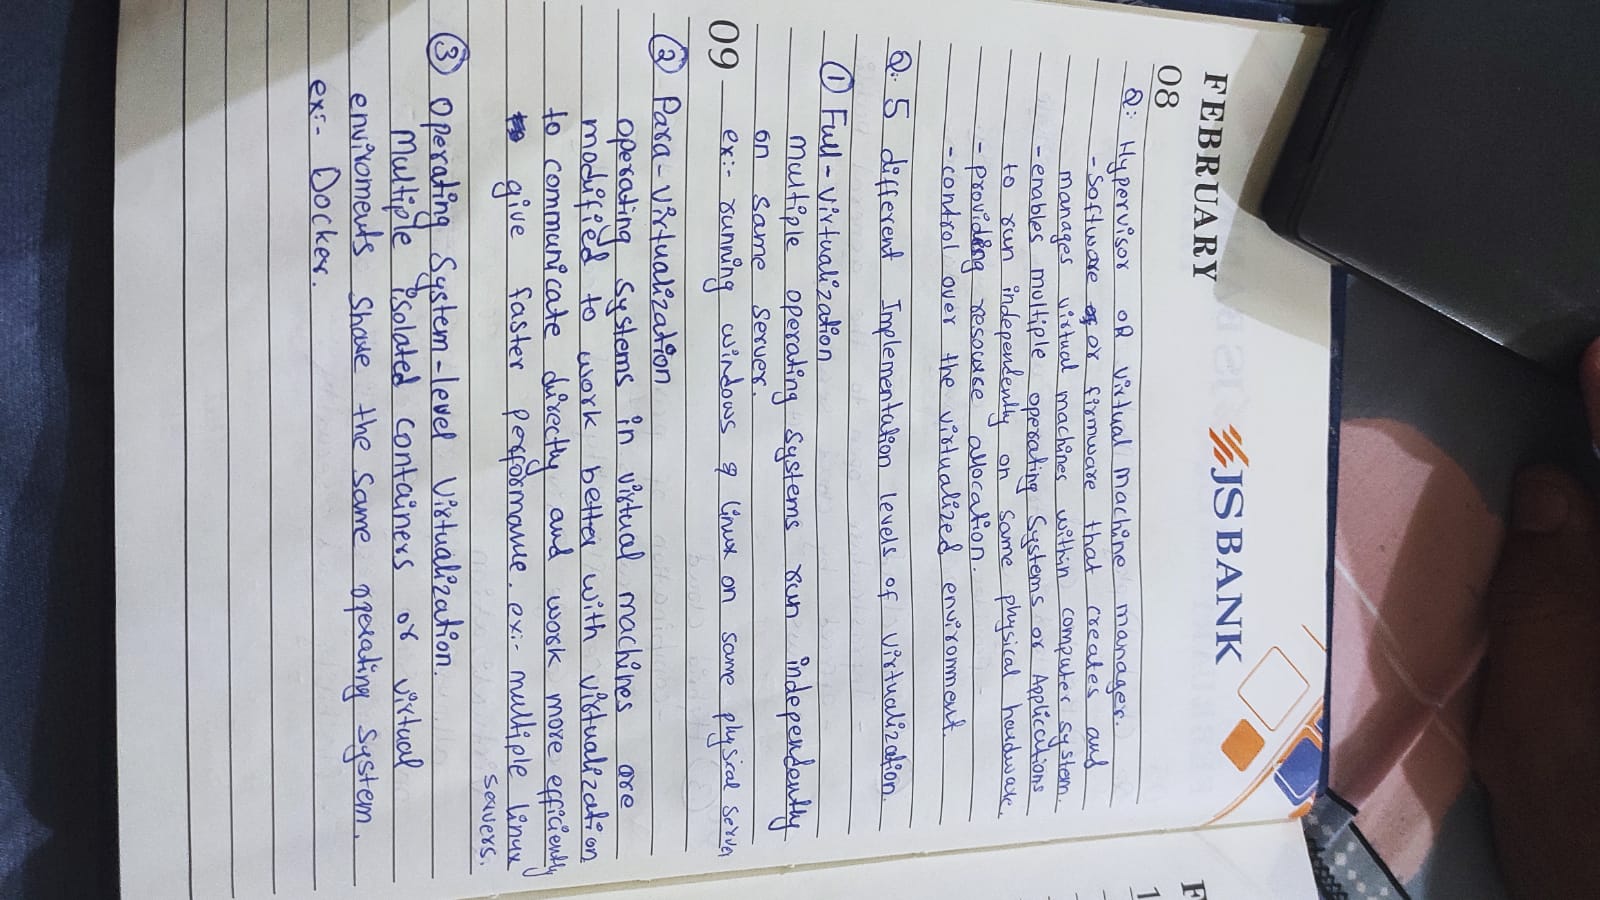 JS BANK
FEBRUARY
08
Q:- Hypervisor OR virtual machine manager.
- Software or firmware that creates and
manages virtual machines within computer system.
- enables multiple operating Systems or Applications
to run independently on same physical hardware.
- providing resourse allocation.
- control over the virtualized environment.
Q:- 5 different Implementation levels of Virtualization.
① Full-Virtualization
Multiple operating systems run independently
on same server.
09
ex:- running windows & linux on same physical server
② Para-Virtualization
operating systems in virtual machines are
modified to work better with virtualization
to communicate directly and work more efficiently
give faster performance. ex:- multiple linux
servers.
③ Operating System-level Virtualization.
Multiple isolated containers or virtual
enviroments share the same operating system.
ex:- Docker.
F
1